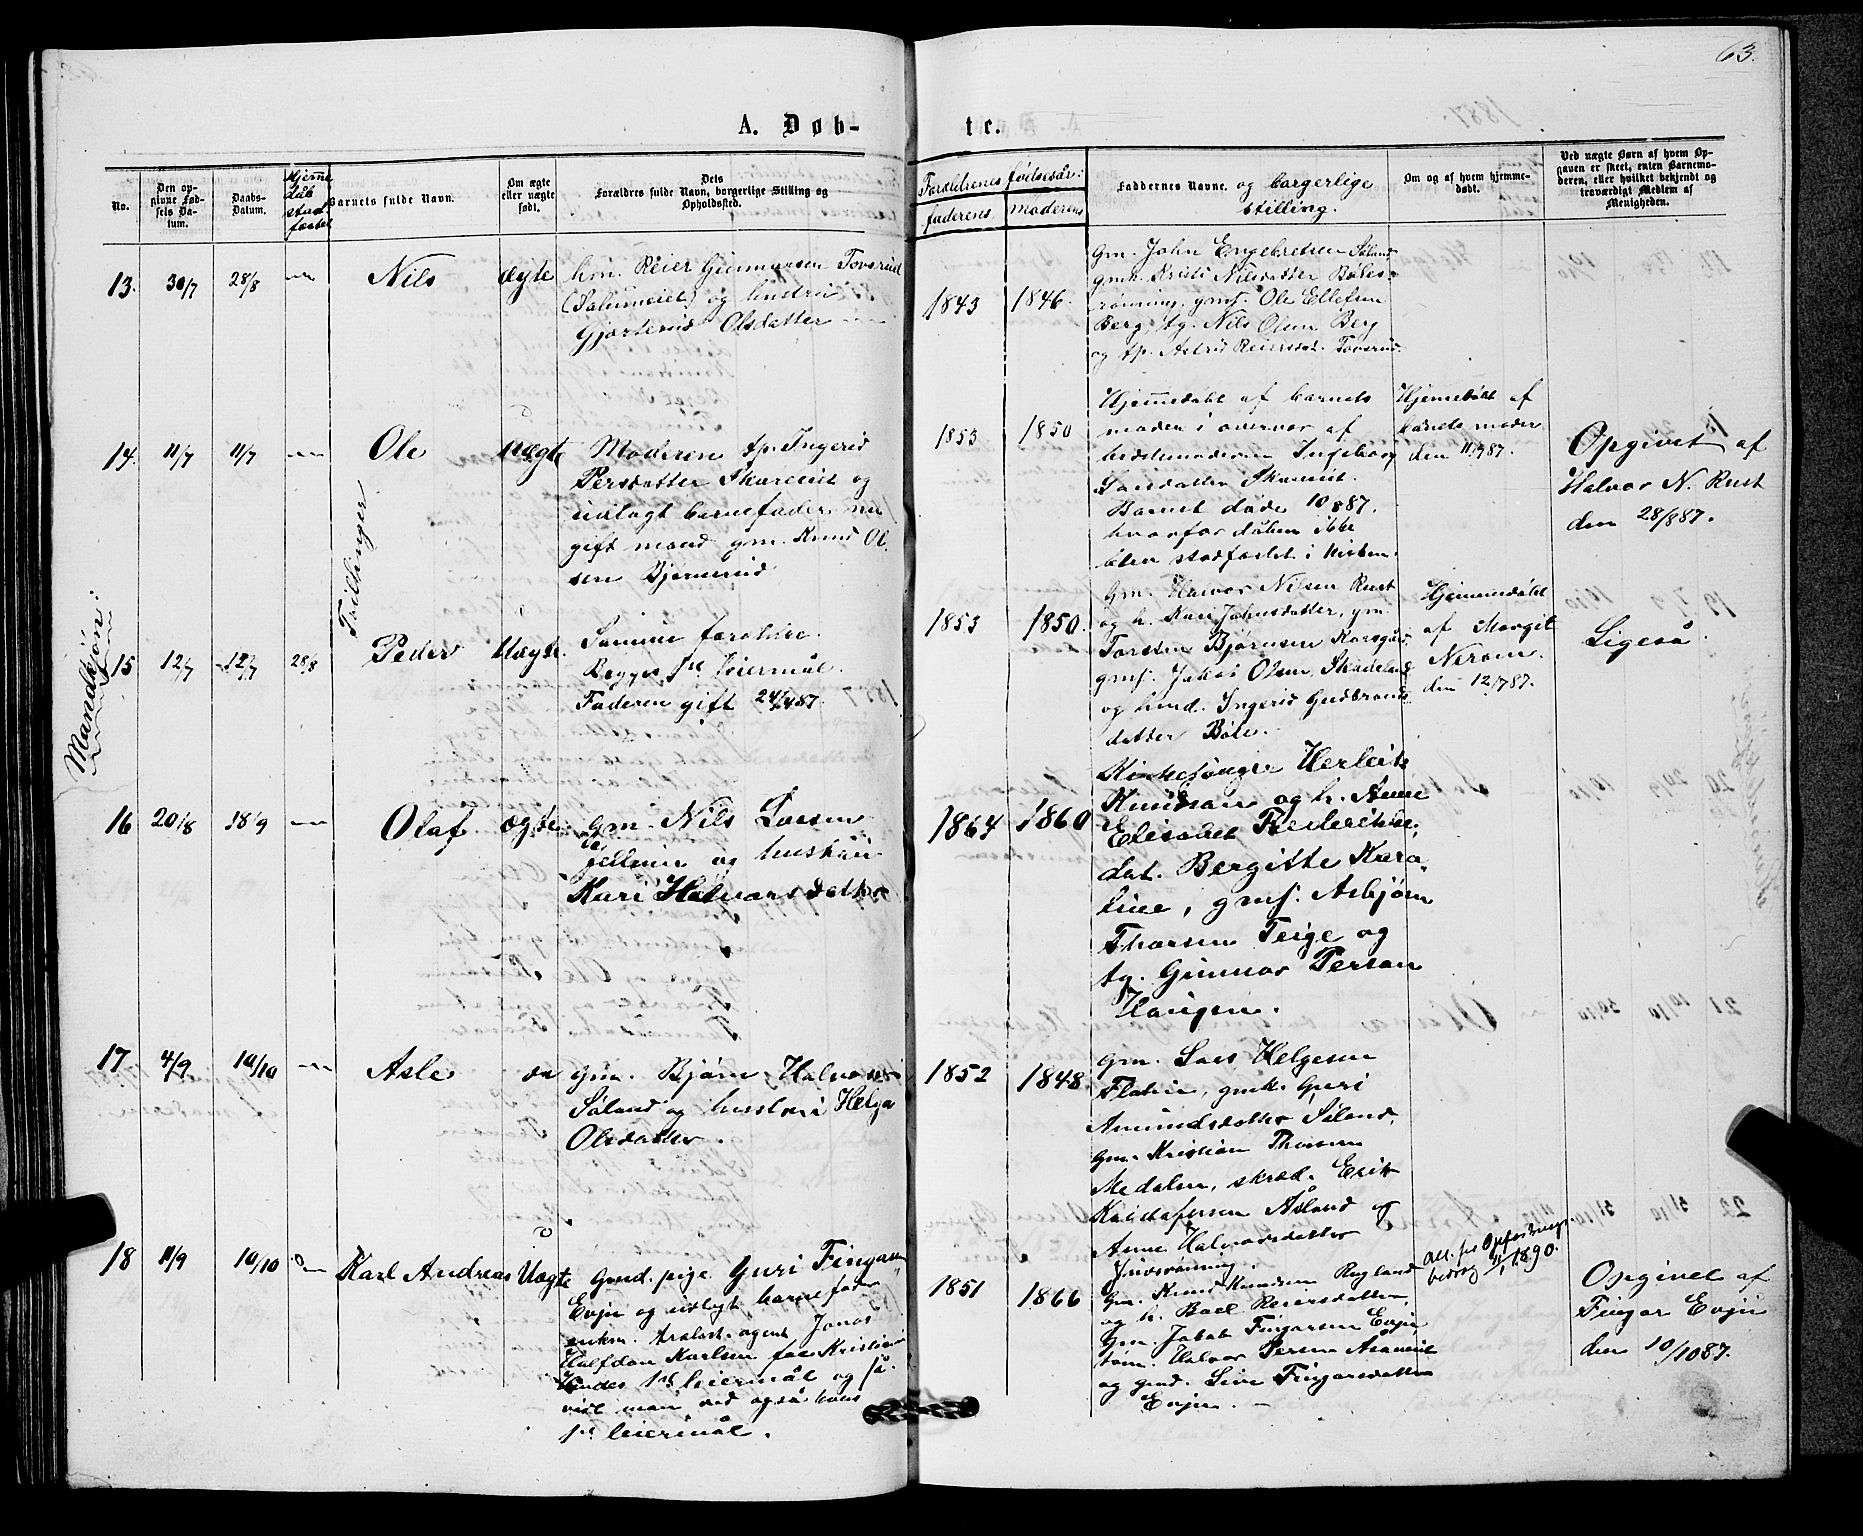 63.
A. Døb-
te.
No.
Den op-
givne Fød-
sels Da-
tum.
Daabs-
Datum.
Hjemme
dåb
stad
fæstet
Barnets fulde Navn.
Om ægte
eller uægte
født.
Dets
Forældres fulde Navn, borgerlige Stilling og
Opholdssted.
Forældrenes fødselsår:
faderens
moderens
Faddernes Navne. og borgerlige
stilling.
Om og af hvem hjemme-
døbt.
Ved uægte Børn af hvem Op-
gaven er skeet, enten Barnemo-
deren, eller hvilket bekjendt og
troværdigt Medlem af
Menigheden.
Mandkjøn:
13.
30/7
28/8
Nils
ægte
hm. Reier Gunnarsen Tovsrud
og hustru
Olsdatter
1843
1846.
Gm. John Engebretsen Søland
gmk. Nilsdatter Bøles-
rønning, gms. Ole Ellefsen
Berg, tg. Nils Olsen Berg
og tp. Astrid Reiersdat. Tovsrud.
14.
11/7
11/7
Ole
uægte
Moderen tp. Ingerid
Persdatter og
udlagt barnefader nu
gift mand gm. Knud Ol-
sen Bjernerud
1853
1850
Hjemmedøbt af barnets
moder i overvær af
bedstemoderen Ingeborg
Barnet døde 10/8 87.
hvorfor dåben ikke
blev stadfæstet i kirken.
Hjemmedøbt af
barnets moder
den 11/7 87.
Opgivet af
Halvor N. Rust
den 28/8 87.
Tvillinger
15
12/7
12/7
28/8
Peder
Uægte
Samme forældre.
Begges 1ste leiermål.
Faderen gift 24/4 87.
1853
1850.
Gm. Halvor Nilsen Rust
og h. Kari Johnsdatter, gm.
Torsten Bjørnsen
gms. Jakob Olsen
og Ingerid Gudbrands
datter Bøle.
Hjemmedøbt
af Margit
den 12/7 87.
Ligeså
16
20/8
18/9
Olaf
ægte
gm. Nils Larsen
og hustru
Kari Halvorsdatter
1864
1860
Kirkesanger Herleik
Knudsen og h. Anne
Elisabet Frederikke,
dat. Bergitte Karo-
line, gms. Asbjørn
Thorsen Teige og
tg. Gunnar Persen
Haugen.
17
4/9
10/10
Asle
do
gm. Bjørn Halvorsen
Søland og hustru Helga
Olsdatter.
1852
1848
Gm. Lars Helgesen
gmk. Guri
Amundsdatter Søland,
gm. Kristian Thorsen
Medalen, skræd. Erik
Åsland og
Anne Halvorsdatter
18
11/9
10/10
Karl Andreas
Uægte
Gmd. pige Guri Fingarsd.
Evju og udlagt barnefader
enkm. agent, Jonas
Halfdan Karlsen fra Kristiania
Hendes 1ste leiermål og så
vidt man ved også hans
1ste leiermål.
1851
1866
Gm. Knud Knudsen Rugland
og h. Boel Reiersdatter,
Gm. Jakob Fingarsen Evju,
tøm. Halvor Persen
og gmd. Live Fingarsdatter
Evju.
Att. for Opfostrings
bidrag 11/1 1890.
Opgivet af
Fingar Evju
den 10/10 87.